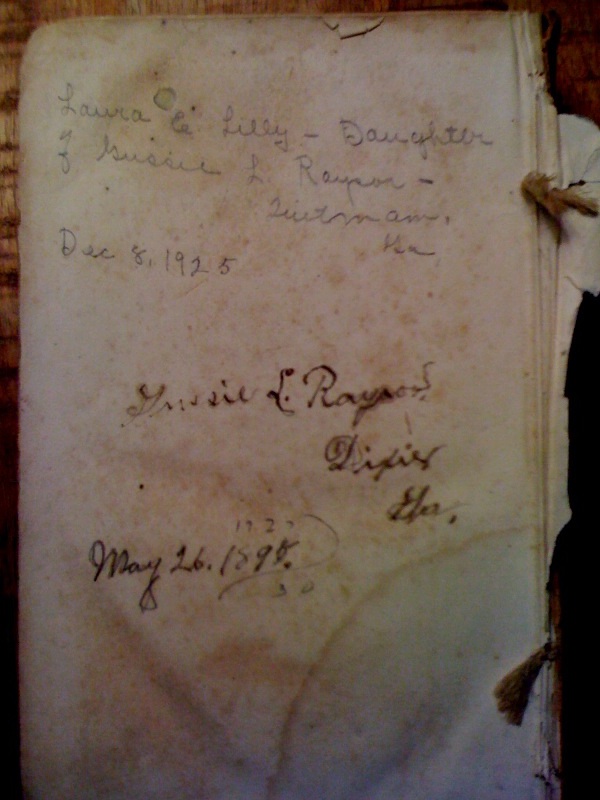 Laura E. Lilly - Daughter
of Gussie L Raysor -
Quitman,
Ga
Dec 8, 1925
Gussie L. Raysor
Dixie
Ga.
May 26. 1895.
30